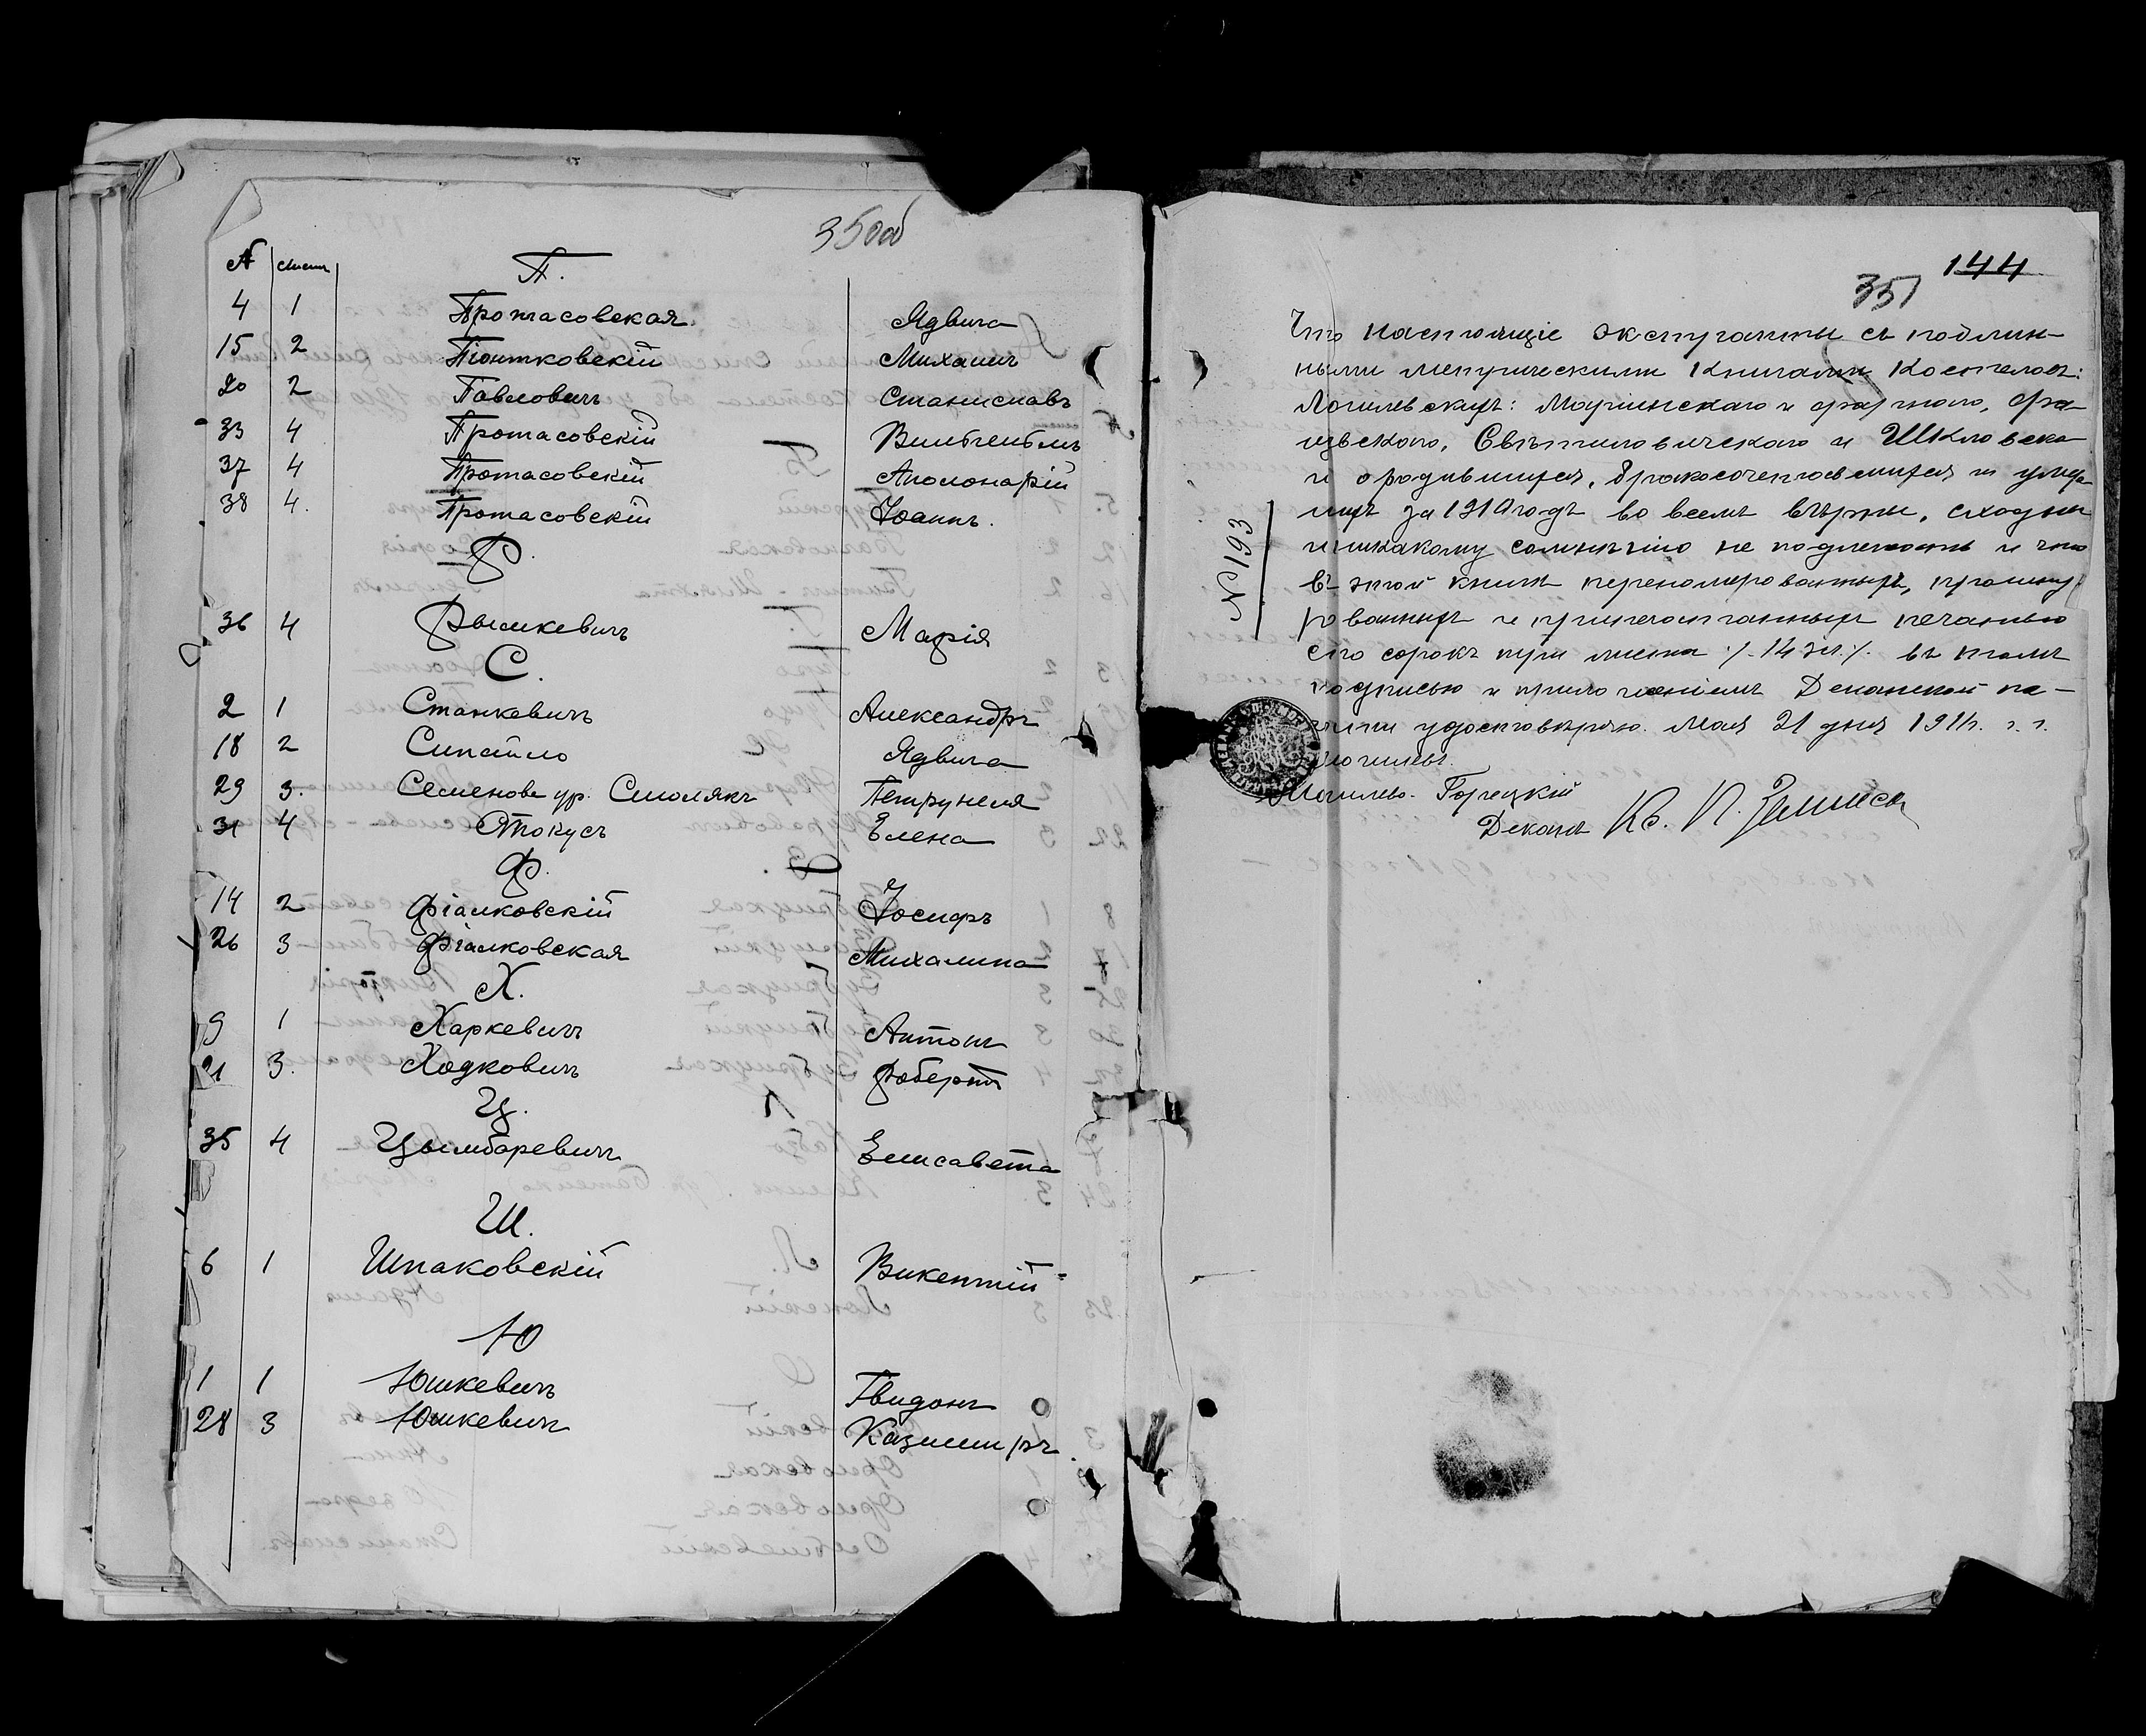 35об
№ листъ П.
4 1 Протасовская Ядвига
15 2 Піонтковскій Михаилъ
20 2 Павловичъ Станиславъ
33 4 Протасовскій Вильгельмъ
37 4 Протасовскій Аполонарій
38 4. Протасовскій Іоаннъ.
Р.
36 4 Рымкевичъ Марія
С.
2 1 Станкевичъ Александръ
18 2 Сипайло Ядвига
29 3. Семенова ур. Смолякъ Петрунеля
31 4 Стокусъ Елена
Ф.
14 2 Фіалковскій Іосифъ
26 3 Фіалковская Михалина
Х.
9 1 Харкевичъ Антонъ
21 3. Ходковичъ Робертъ
Ц.
35 4 Цымбаревичъ Елисавета
Ш.
6 1 Шпаковскій Викентій
Ю
1 1 Юшкевичъ Гвидонъ
28 3 Юшкевичъ Казимиръ.
144
351
Что настоящіе экстракты съ подлин-
ными метрическими книгами Костеловъ:
Могилевскихъ: Маріинскаго и фарнаго, Фа-
щевскаго, Свѣтиловическаго и Шкловска-
о родившихся, бракосочетавшихся и умер-
шихъ за 1910 годъ во всемъ вѣрны, сходны
и никакому сомнѣнію не подлежатъ и что
въ этой книгѣ перенумерованныхъ, прошну-
рованныхъ и припечатанныхъ печатью
сто сорокъ три листа /. 143 л. /. въ томъ
подписью и приложеніемъ Деканской пе-
чати удостовѣряю. Мая 21 дня 1911. г. г.
Могилевъ.
Могилево-Горецкій
Деканъ Кс. П.
№ 193